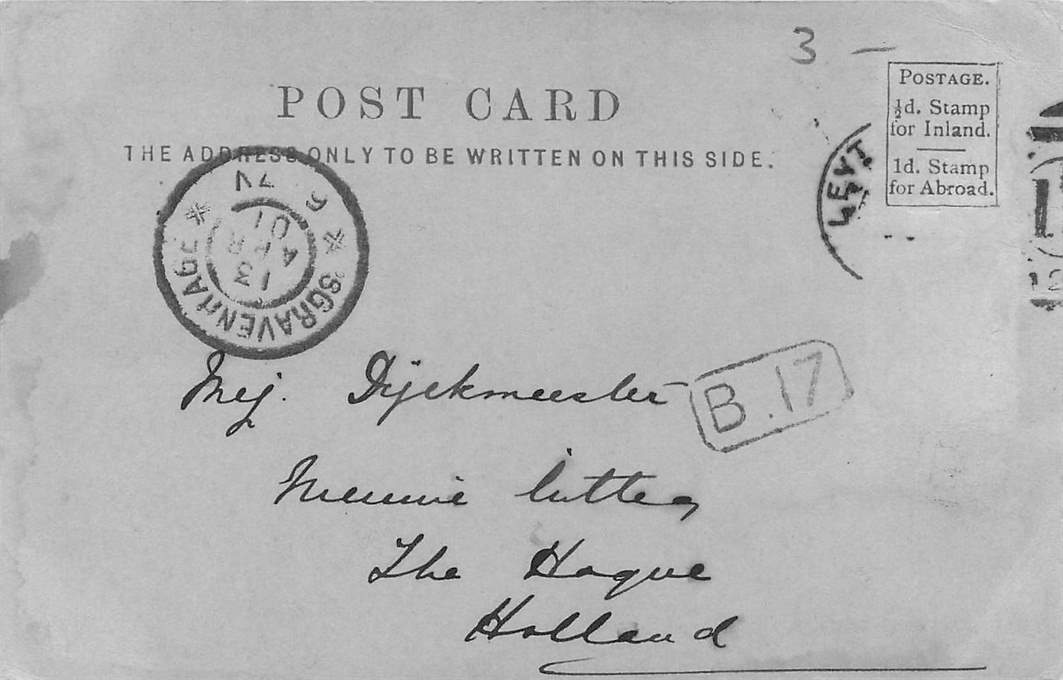 3 —
POST CARD
THE ADDRESS ONLY TO BE WRITTEN ON THIS SIDE.
POSTAGE.
½d. Stamp
for Inland.
1d. Stamp
for Abroad.
'SGRAVENHAGE
13
APR
01
LEYT
B.17
Mej. Dijckmeester
The Hague
Holland